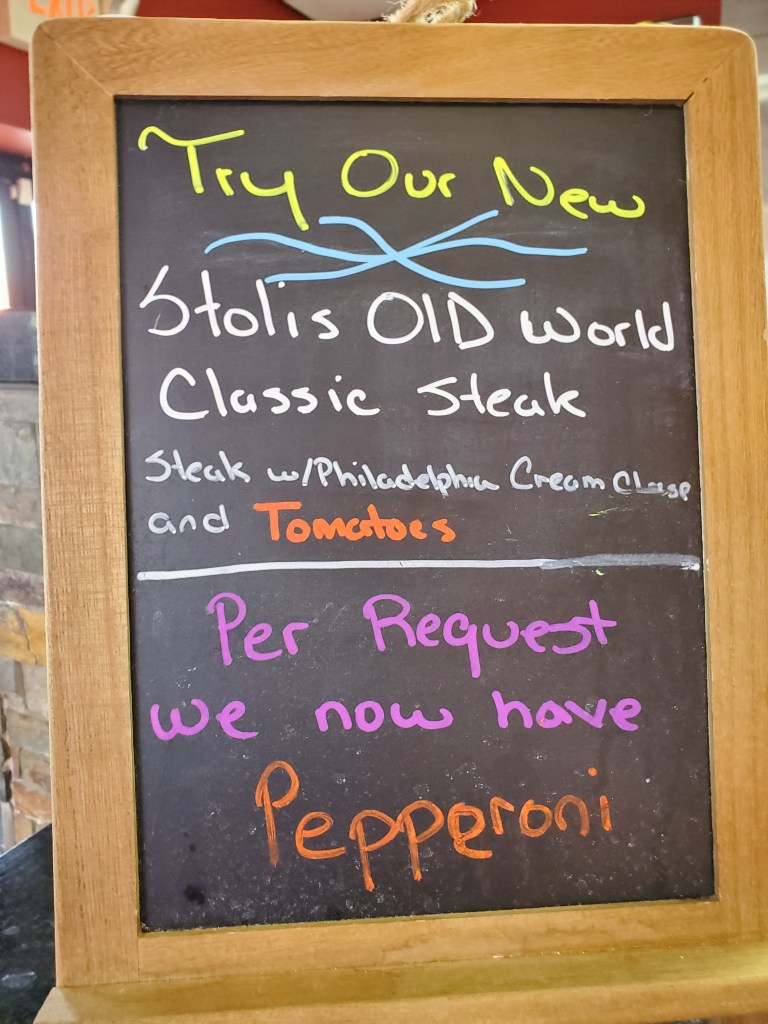 Try Our New
Stolis OlD world
Classic Steak
Steak w/Philadelphia Cream Chese
and Tomatoes
Per Request
we now have
Pepperoni